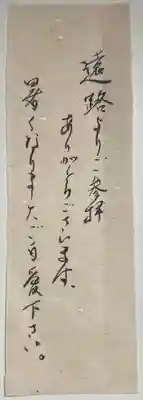 遠路よりご参拝
ありがとうございます。
暑くなりましたご自愛下さい。